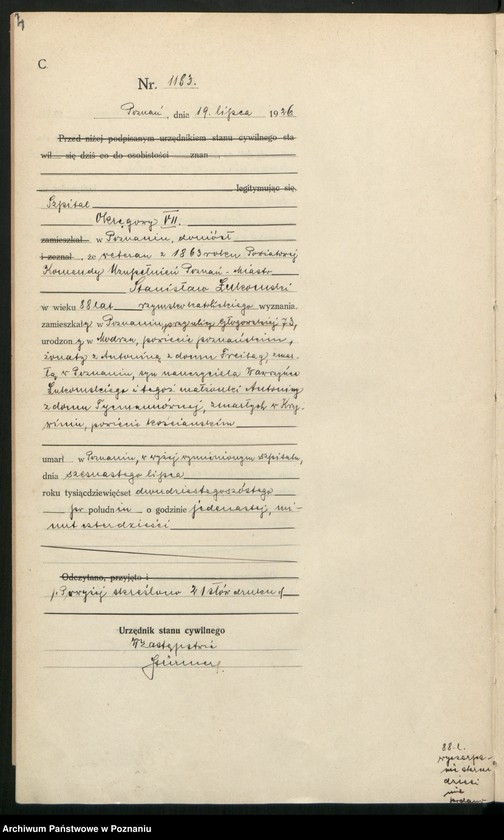 C.
Nr. 1183.
Poznań, dnia 19. lipca 1926
Przed niżej podpisanym urzędnikiem stanu cywilnego sta
wił się dziś co do osobistości znan
legitymując się.
Szpital
Okręgowy VII.
zamieszkał w Poznaniu, doniósł
i zeznał, że weteran z 1863 roku Powiatowej
Komendy Uzupełnień Poznań-Miasto
Stanisław
w wieku 88 lat rzymskokatolickiego wyznania.
zamieszkały w Poznaniu, przy ulicy Głogowskiej 73,
urodzony w Modrzu, powiecie poznańskim,
żonaty z Antoniną z domu Freitag zmar-
łą w Poznaniu, syn nauczyciela Wawrzyńca
i tegoż małżonki Antoniny
z domu zmarłych w Krzy-
winiu, powiecie kościańskim
umarł w Poznaniu, w wyżej wymienionym szpitalu,
dnia szesnastego lipca
roku tysiącdziewięćset dwudziestegoszóstego
po południu o godzinie jedenastej, mi-
nut czterdzieści
Odczytano, przyjęto i
Powyżej skreślono 21 słów druku
Urzędnik stanu cywilnego
W zastępstwie
88 l.
Archiwum Państwowe w Poznaniu